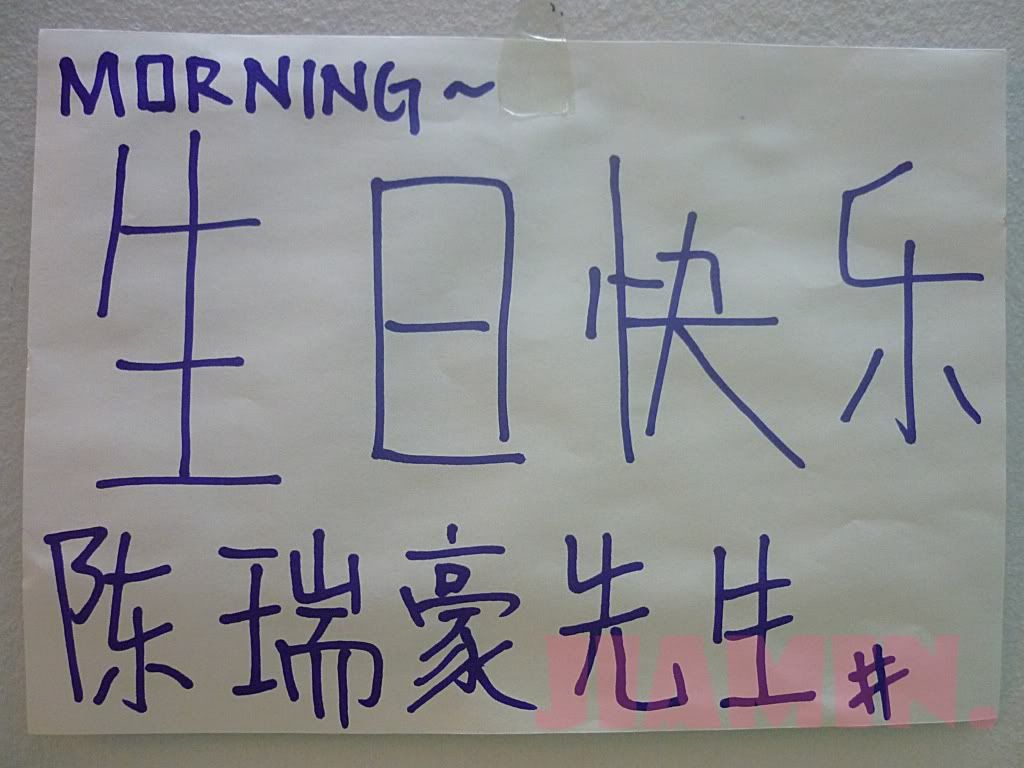 MORNING~
生日快乐
陈瑞豪先生#
JIAMIN.